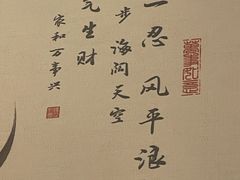 一忍风平浪
步海阔天空
气生财
家和万事兴